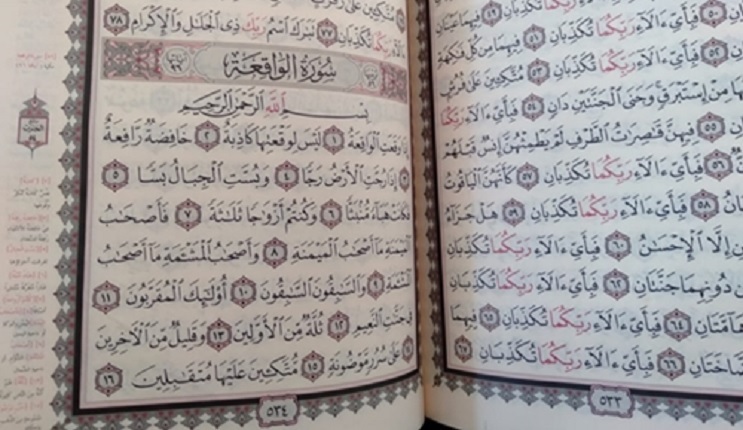 فِيهِمَا عَيْنَانِ
٥٠ فَبِأَيِّ ءَالَآءِ رَبِّكُمَا تُكَذِّبَانِ ٤٩
٥١ فِيهِمَا مِن كُلِّ فَٰكِهَةٍ
٥٢ فَبِأَيِّ ءَالَآءِ رَبِّكُمَا تُكَذِّبَانِ ٥٣ مُتَّكِـِٔينَ عَلَىٰ فُرُشٍ
مِنْ إِسْتَبْرَقٍ وَجَنَى ٱلْجَنَّتَيْنِ دَانٍ ٥٤ فَبِأَيِّ ءَالَآءِ رَبِّكُمَا
٥٥ فِيهِنَّ قَٰصِرَٰتُ ٱلطَّرْفِ لَمْ يَطْمِثْهُنَّ إِنسٌ قَبْلَهُمْ
٥٦ فَبِأَيِّ ءَالَآءِ رَبِّكُمَا تُكَذِّبَانِ ٥٧ كَأَنَّهُنَّ ٱلْيَاقُوتُ
٥٨ فَبِأَيِّ ءَالَآءِ رَبِّكُمَا تُكَذِّبَانِ ٥٩ هَلْ جَزَآءُ
إِلَّا ٱلْإِحْسَٰنُ ٦٠ فَبِأَيِّ ءَالَآءِ رَبِّكُمَا تُكَذِّبَانِ
دُونِهِمَا جَنَّتَانِ ٦٢ فَبِأَيِّ ءَالَآءِ رَبِّكُمَا تُكَذِّبَانِ
٦٤ فَبِأَيِّ ءَالَآءِ رَبِّكُمَا تُكَذِّبَانِ ٦٥ فِيهِمَا
نَضَّاخَتَانِ ٦٦ فَبِأَيِّ ءَالَآءِ رَبِّكُمَا تُكَذِّبَانِ ٦٧
٥٣٣
مُتَّكِـِٔينَ عَلَىٰ رَفْرَفٍ
ءَالَآءِ رَبِّكُمَا تُكَذِّبَانِ ٧٧ تَبَٰرَكَ ٱسْمُ رَبِّكَ ذِى ٱلْجَلَٰلِ وَٱلْإِكْرَامِ ٧٨
سُورَةُ الوَاقِعَةِ
بِسْمِ ٱللَّهِ ٱلرَّحْمَٰنِ ٱلرَّحِيمِ
إِذَا وَقَعَتِ ٱلْوَاقِعَةُ ١ لَيْسَ لِوَقْعَتِهَا كَاذِبَةٌ ٢ خَافِضَةٌ رَّافِعَةٌ
٣ إِذَا رُجَّتِ ٱلْأَرْضُ رَجًّا ٤ وَبُسَّتِ ٱلْجِبَالُ بَسًّا ٥
فَكَانَتْ هَبَآءً مُّنۢبَثًّا ٦ وَكُنتُمْ أَزْوَٰجًا ثَلَٰثَةً ٧ فَأَصْحَٰبُ
ٱلْمَيْمَنَةِ مَآ أَصْحَٰبُ ٱلْمَيْمَنَةِ ٨ وَأَصْحَٰبُ ٱلْمَشْـَٔمَةِ مَآ أَصْحَٰبُ
ٱلْمَشْـَٔمَةِ ٩ وَٱلسَّٰبِقُونَ ٱلسَّٰبِقُونَ ١٠ أُو۟لَٰٓئِكَ ٱلْمُقَرَّبُونَ ١١
فِى جَنَّٰتِ ٱلنَّعِيمِ ١٢ ثُلَّةٌ مِّنَ ٱلْأَوَّلِينَ ١٣ وَقَلِيلٌ مِّنَ ٱلْءَاخِرِينَ
١٤ عَلَىٰ سُرُرٍ مَّوْضُونَةٍ ١٥ مُّتَّكِـِٔينَ عَلَيْهَا مُتَقَٰبِلِينَ ١٦
٥٣٤